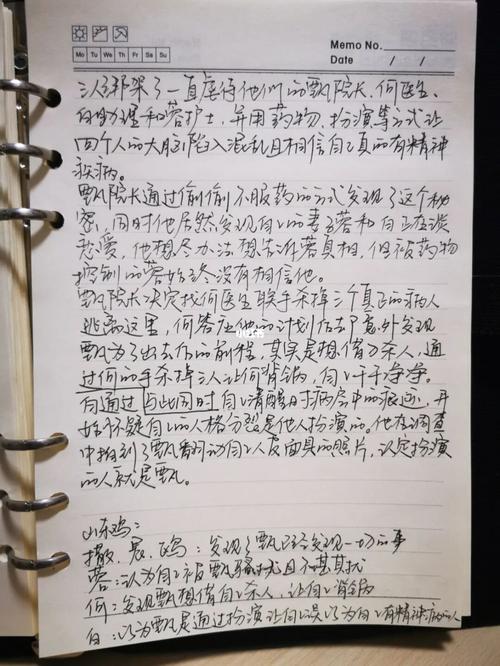 Memo No.
Mo Tu We Th Fr Sa Su
Date / /
三人绑架了一直虐待他们的甄院长、何医生、
白助理和蓉护士,并用药物、扮演等方式让
四个人的大脑陷入混乱且相信自己真的有精神
疾病。
甄院长通过偷偷不服药的方式发现了这个秘
密,同时他居然发现自己的妻子蓉和白正在谈
恋爱,他想尽办法想告诉蓉真相,但被药物
控制的蓉始终没有相信他。
甄院长决定找何医生联手杀掉三个真正的病人
逃离这里,何答应他的计划后却意外发现
甄为了出去后的前程,其实是想借刀杀人,通
过何的手杀掉三人让何背锅,自己干干净净。
白通过与此同时自己清醒时病房中的痕迹,开
始怀疑自己的人格分裂是他人扮演的。他在调查
中拍到了甄翻动自己人皮面具的照片,认定扮演
的人就是甄。
山东鸡:
撒、晁、鸥:发现了甄已经发现一切的事
蓉:认为自己被甄骚扰且不堪其扰
何:发现甄想借自己杀人,让自己背锅
白:以为甄是通过扮演让自己误以为自己有精神病的人